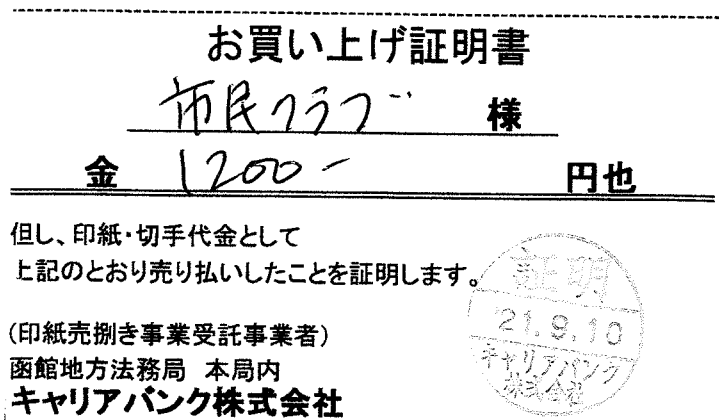 お買い上げ証明書
市民クラブ 様
金 1200- 円也
但し、印紙・切手代金として
上記のとおり売り払いしたことを証明します。
証明
21.9.10
キャリアバンク
株式会社
(印紙売捌き事業受託事業者)
函館地方法務局 本局内
キャリアバンク株式会社